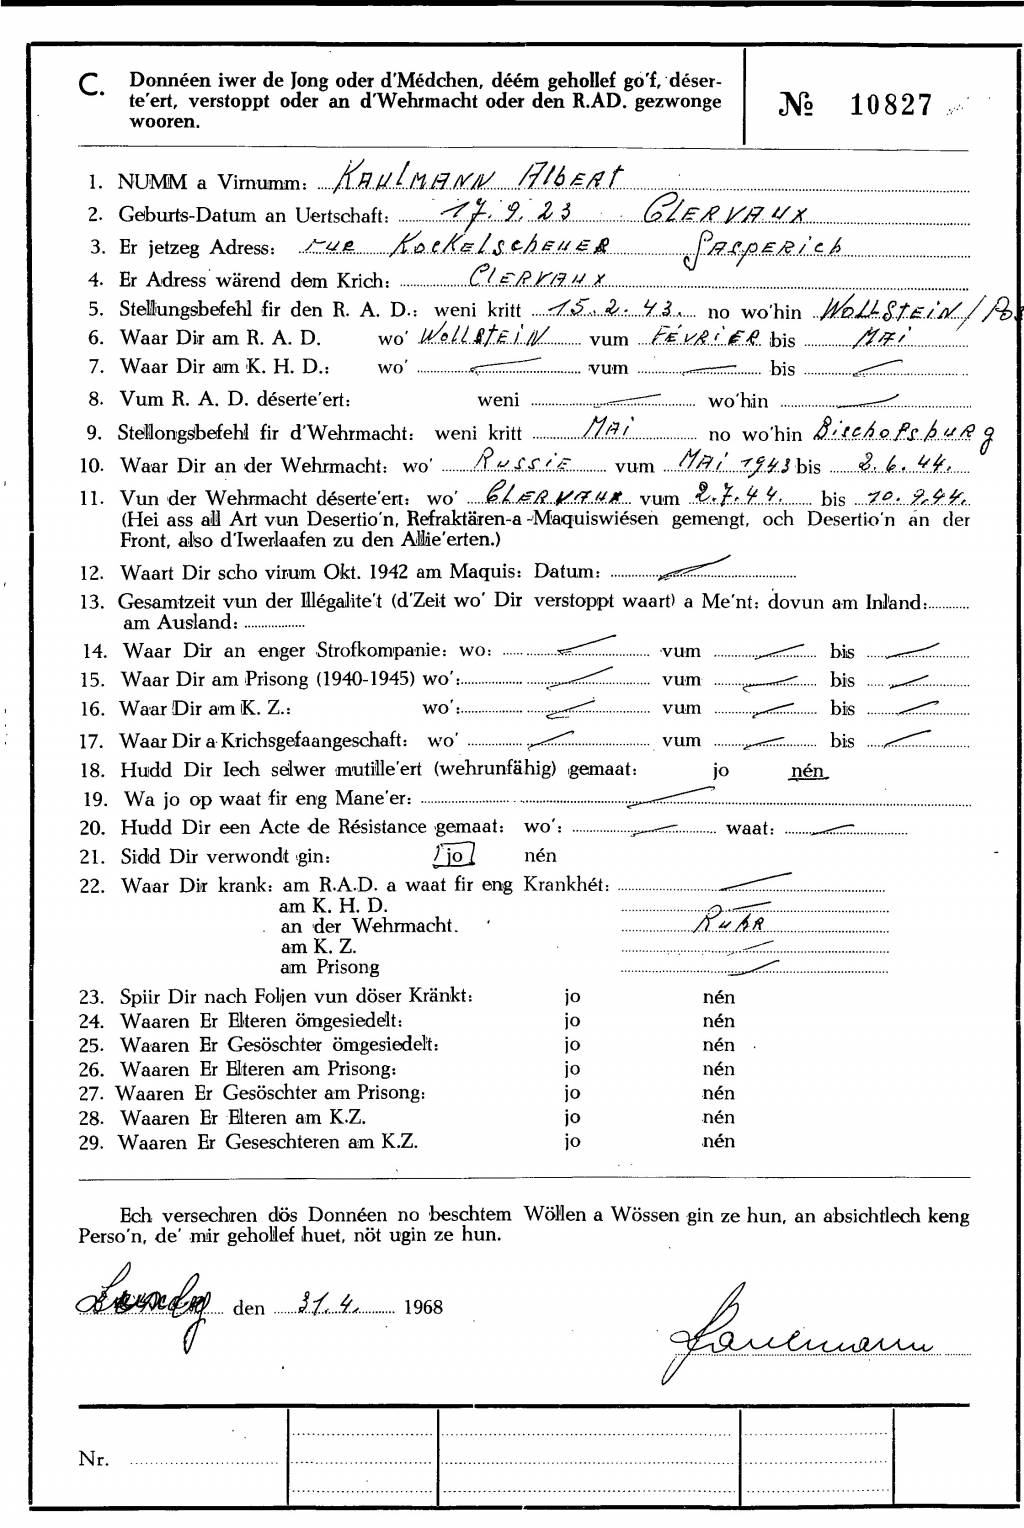 C. Donnéen iwer de Jong oder d'Médchen, déém gehollef go'f, déser-
te'ert, verstoppt oder an d'Wehrmacht oder den R.AD. gezwonge
wooren.
№ 10827
1. NUMM a Virnumm: KAULMANN AlbERT
2. Geburts-Datum an Uertschaft: 17. 9. 23 CLERVAUX
3. Er jetzeg Adress: rue KockElscheuER GASpERich
4. Er Adress wärend dem Krich: ClERVAUX
5. Stellungsbefehl fir den R. A. D.: weni kritt 15. 2. 43. no wo'hin WOLLSTEiN / POS
6. Waar Dir am R. A. D. wo' WOLLSTEiN vum FÉVRiER bis MAi
7. Waar Dir am K. H. D.: wo' vum bis
8. Vum R. A. D. déserte'ert: weni wo'hin
9. Stellongsbefehl fir d'Wehrmacht: weni kritt MAi no wo'hin BischoFsbuRg
10. Waar Dir an der Wehrmacht: wo' RussiE vum MAi 1943 bis 2. 6. 44.
11. Vun der Wehrmacht déserte'ert: wo' CLERVAUX vum 2. 7. 44. bis 10. 9. 44.
(Hei ass all Art vun Desertio'n, Refraktären-a -Maquiswiésen gemengt, och Desertio'n an der
Front, also d'Iwerlaafen zu den Allie'erten.)
12. Waart Dir scho virum Okt. 1942 am Maquis: Datum:
13. Gesamtzeit vun der Illégalite't (d'Zeit wo' Dir verstoppt waart) a Me'nt: dovun am Inland:
am Ausland:
14. Waar Dir an enger Strofkompanie: wo: vum bis
15. Waar Dir am Prisong (1940-1945) wo': vum bis
16. Waar Dir am K. Z.: wo': vum bis
17. Waar Dir a Krichsgefaangeschaft: wo' vum bis
18. Hudd Dir Iech selwer mutille'ert (wehrunfähig) gemaat: jo nén
19. Wa jo op waat fir eng Mane'er:
20. Hudd Dir een Acte de Résistance gemaat: wo': waat:
21. Sidd Dir verwondt gin: jo nén
22. Waar Dir krank: am R.A.D. a waat fir eng Krankhét:
am K. H. D.
an der Wehrmacht. RuhR
am K. Z.
am Prisong
23. Spiir Dir nach Foljen vun döser Kränkt: jo nén
24. Waaren Er Elteren ömgesiedelt: jo nén
25. Waaren Er Gesöschter ömgesiedelt: jo nén
26. Waaren Er Elteren am Prisong: jo nén
27. Waaren Er Gesöschter am Prisong: jo nén
28. Waaren Er Elteren am K.Z. jo nén
29. Waaren Er Geseschteren am K.Z. jo nén
Ech versechren dös Donnéen no beschtem Wöllen a Wössen gin ze hun, an absichtlech keng
Perso'n, de' mir gehollef huet, nöt ugin ze hun.
den 31. 4. 1968
Kaulmann
Nr.